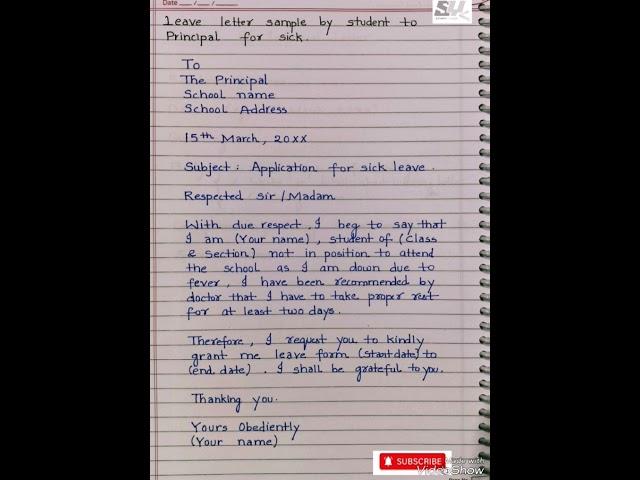 Date __/__/__
SU
Leave letter sample by student to
Principal for sick.
To
The Principal
School name
School Address
15th March, 20xx
Subject : Application for sick leave.
Respected Sir / Madam
With due respect, I beg to say that
I am (Your name), student of (Class
& Section) not in position to attend
the school as I am down due to
fever, I have been recommended by
doctor that I have to take proper rest
for at least two days.
Therefore, I request you to kindly
grant me leave form (start date) to
(end date). I shall be grateful to you.
Thanking you.
Yours Obediently
(Your name)
SUBSCRIBE
Made with
VideoShow